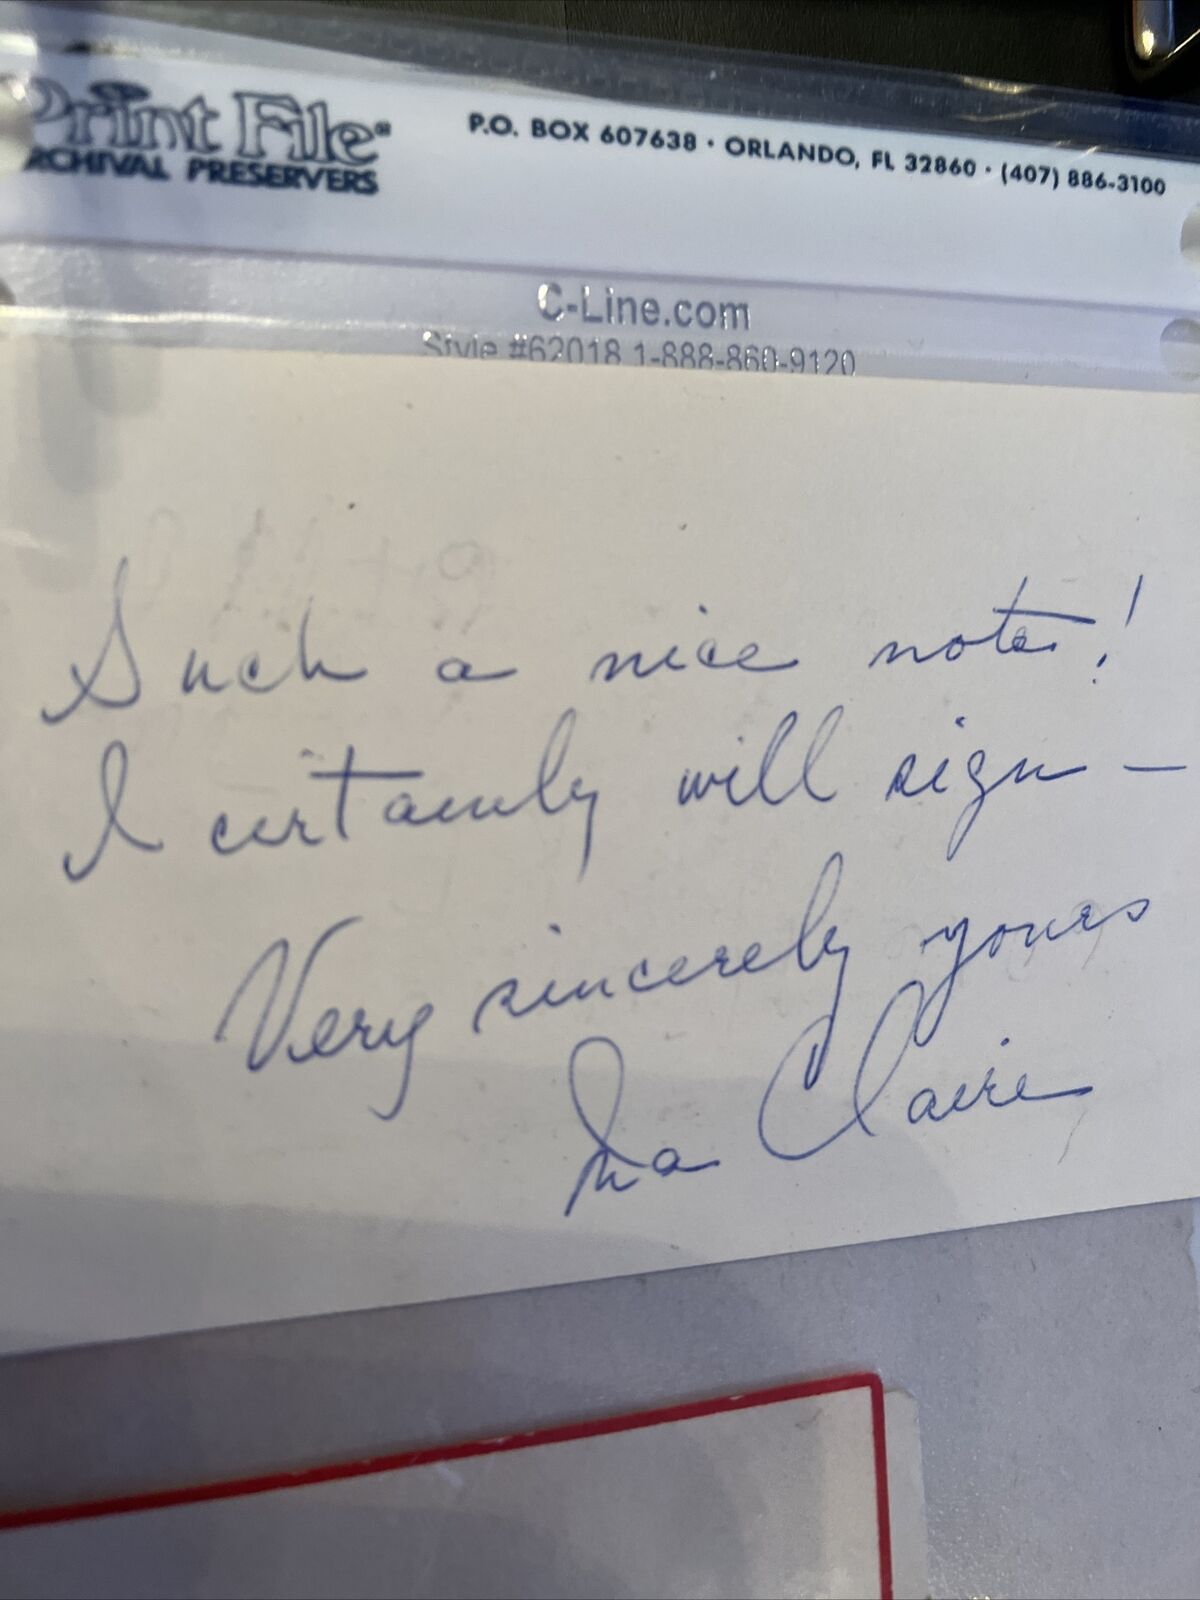 Print File®
ARCHIVAL PRESERVERS
P.O. BOX 607638 • ORLANDO, FL 32860 • (407) 886-3100
C-Line.com
Style #62018 1-888-860-9120
Such a nice note!
I certainly will sign —
Very sincerely yours
Ina Claire